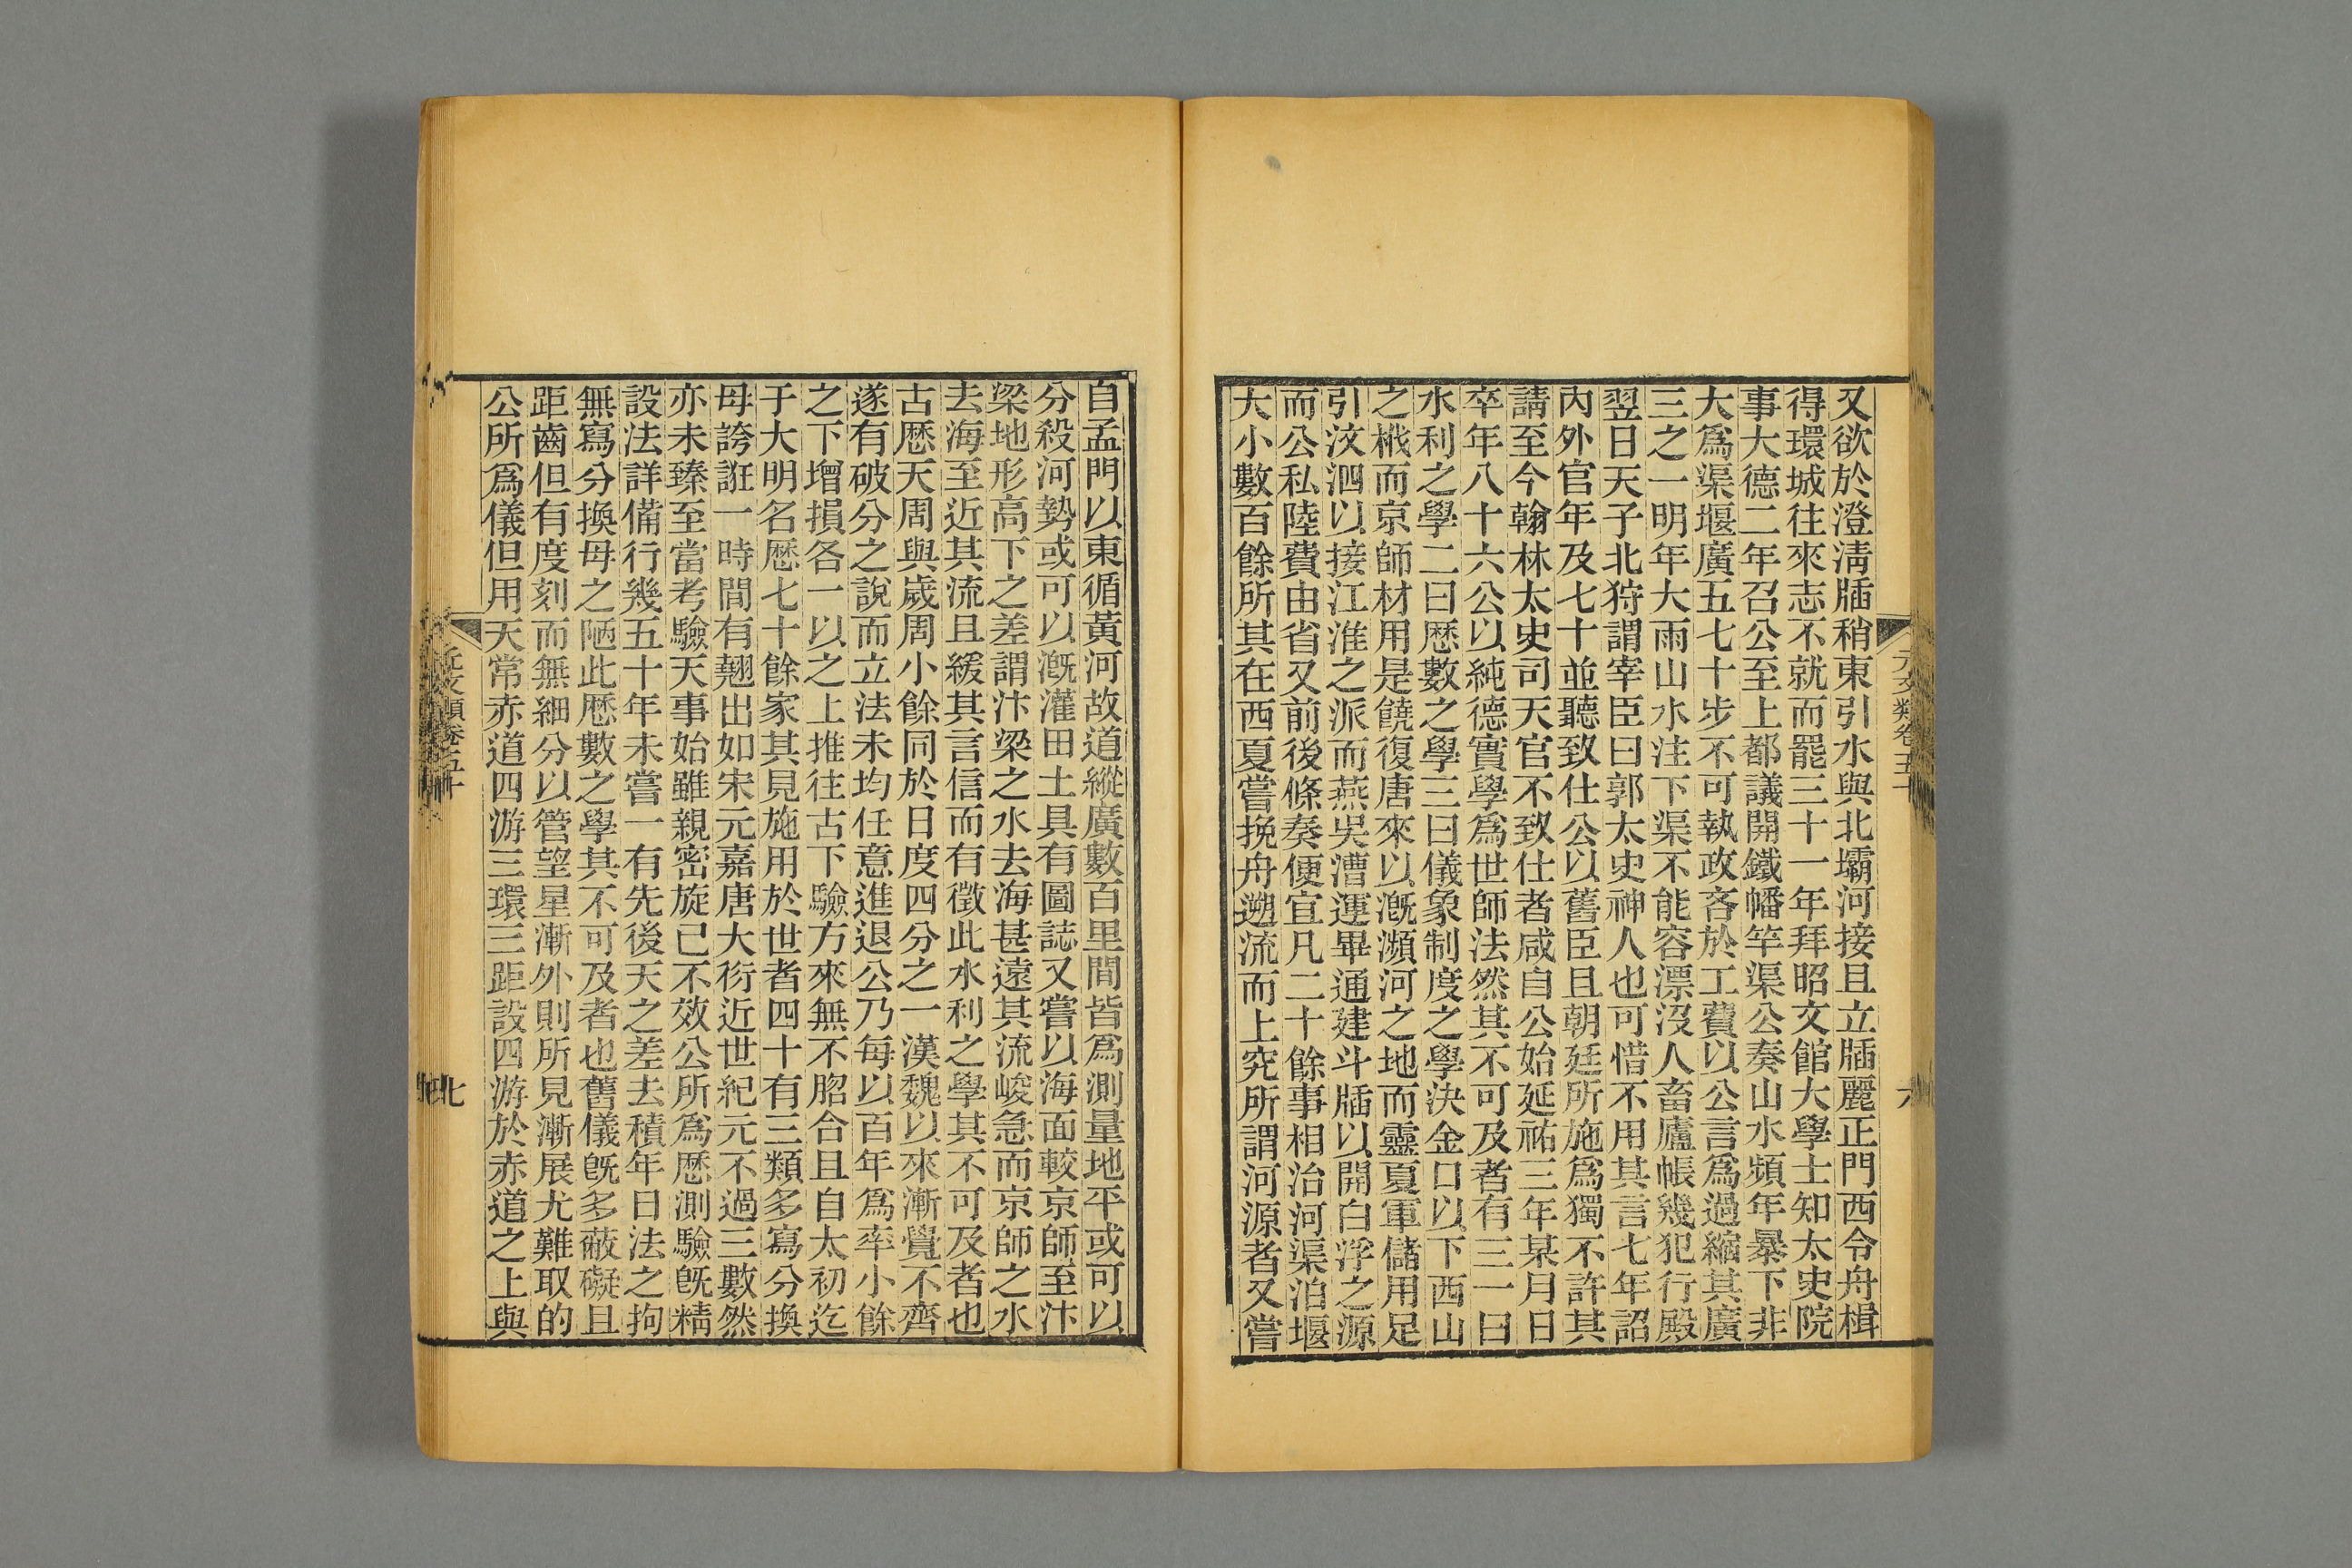 又欲於澄淸牐稍東引水與北壩河接且立牐麗正門西令舟楫
得環城往來志不就而罷三十一年拜昭文館大學士知太史院
事大德二年召公至上都議開鐵幡竿渠公奏山水頻年暴下非
大爲渠堰廣五七十步不可執政吝於工費以公言爲過縮其廣
三之一明年大雨山水注下渠不能容漂沒人畜廬帳幾犯行殿
翌日天子北狩謂宰臣曰郭太史神人也可惜不用其言七年詔
內外官年及七十並聽致仕公以舊臣且朝廷所施爲獨不許其
請至今翰林太史司天官不致仕者咸自公始延祐三年某月日
卒年八十六公以純德實學爲世師法然其不可及者有三一曰
水利之學二曰歷數之學三曰儀象制度之學決金口以下西山
之栰而京師材用是饒復唐來以漑瀕河之地而靈夏軍儲用足
引汶泗以接江淮之派而燕吳漕運畢通建斗牐以開白浮之源
而公私陸費由省又前後條奏便宜凡二十餘事相治河渠泊堰
大小數百餘所其在西夏嘗挽舟遡流而上究所謂河源者又嘗
元文類卷五十
六
自孟門以東循黃河故道縱廣數百里間皆爲測量地平或可以
分殺河勢或可以漑灌田土具有圖誌又嘗以海面較京師至汴
梁地形高下之差謂汴梁之水去海甚遠其流峻急而京師之水
去海至近其流且緩其言信而有徵此水利之學其不可及者也
古歷天周與歲周小餘同於日度四分之一漢魏以來漸覺不齊
遂有破分之說而立法未均任意進退公乃每以百年爲率小餘
之下增損各一以之上推往古下驗方來無不脗合且自太初迄
于大明名歷七十餘家其見施用於世者四十有三類多寫分換
母誇誑一時間有翹出如宋元嘉唐大衍近世紀元不過三數然
亦未臻至當考驗天事始雖親密旋已不效公所爲歷測驗旣精
設法詳備行幾五十年未嘗一有先後天之差去積年日法之拘
無寫分換母之陋此歷數之學其不可及者也舊儀旣多蔽礙且
距齒但有度刻而無細分以管望星漸外則所見漸展尤難取的
公所爲儀但用天常赤道四游三環三距設四游於赤道之上與
元文類卷五十
七